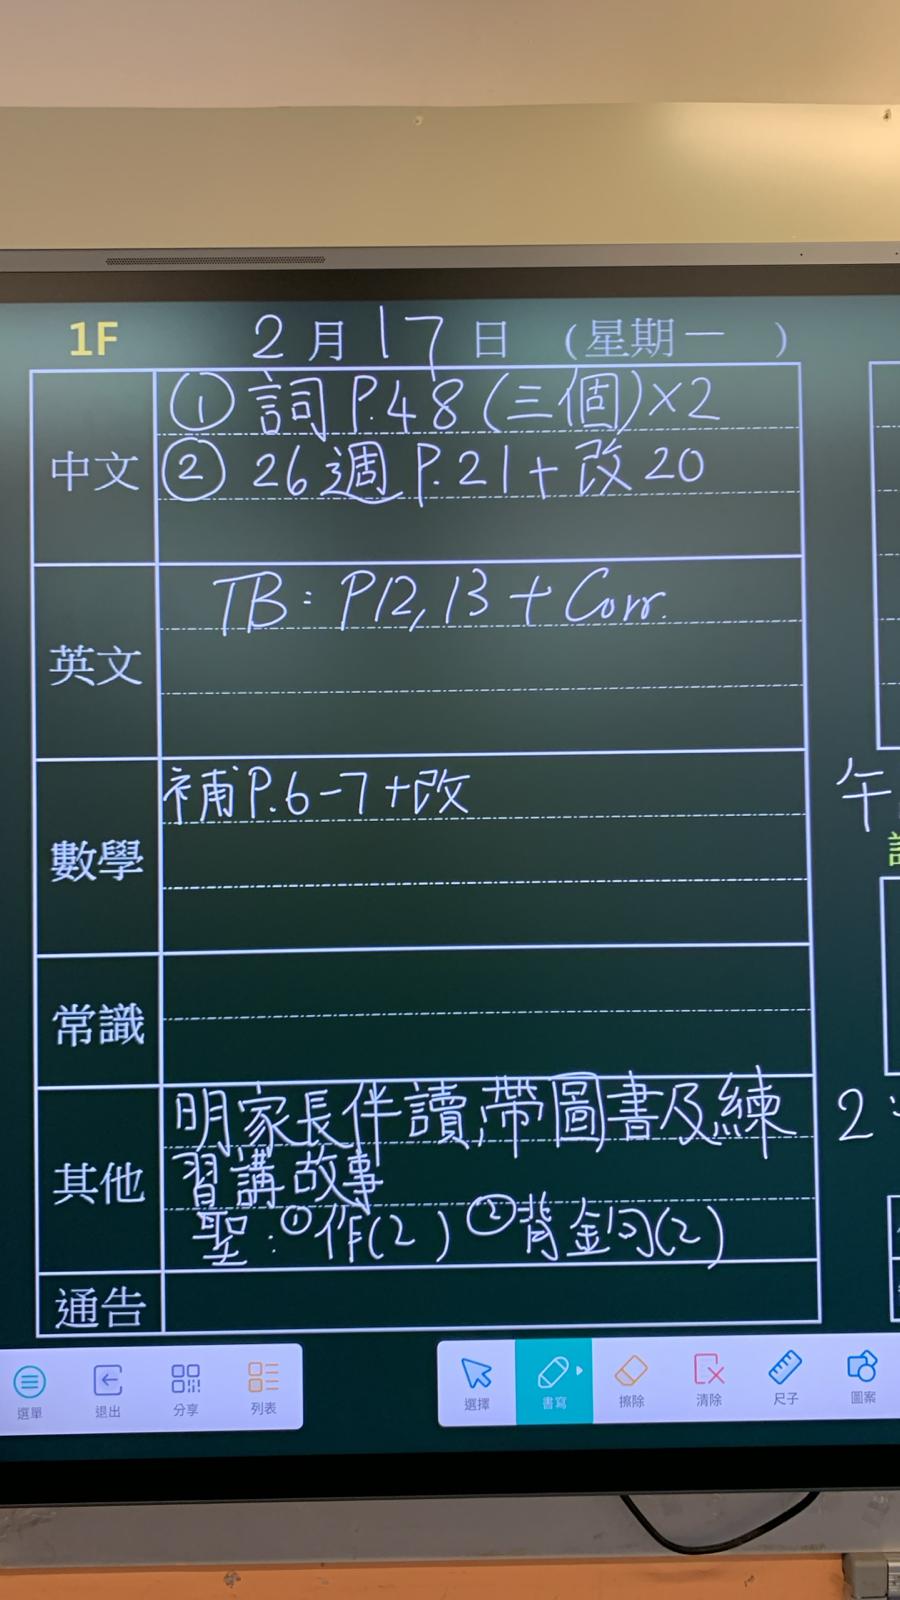 1F 2月17日 (星期一 )
中文
① 詞 P.48 (三個)×2
② 26週 P.21 + 改20
英文
TB: P12, 13 + Corr.
數學
補P.6-7+改
常識
其他
明家長伴讀,帶圖書及練
習講故事
聖:①作(2) ②背金句(2)
通告
午
2
選單
退出
分享
列表
選擇
書寫
擦除
清除
尺子
圖案